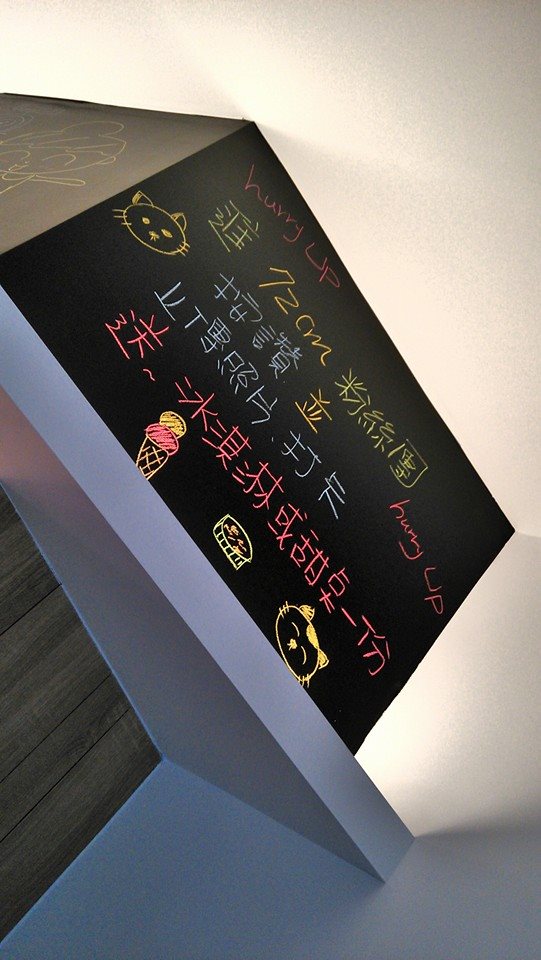 hurry up hurry up
進 72cm 粉絲團
按讚 並
上傳照片.打卡
送~冰淇淋或甜点一份